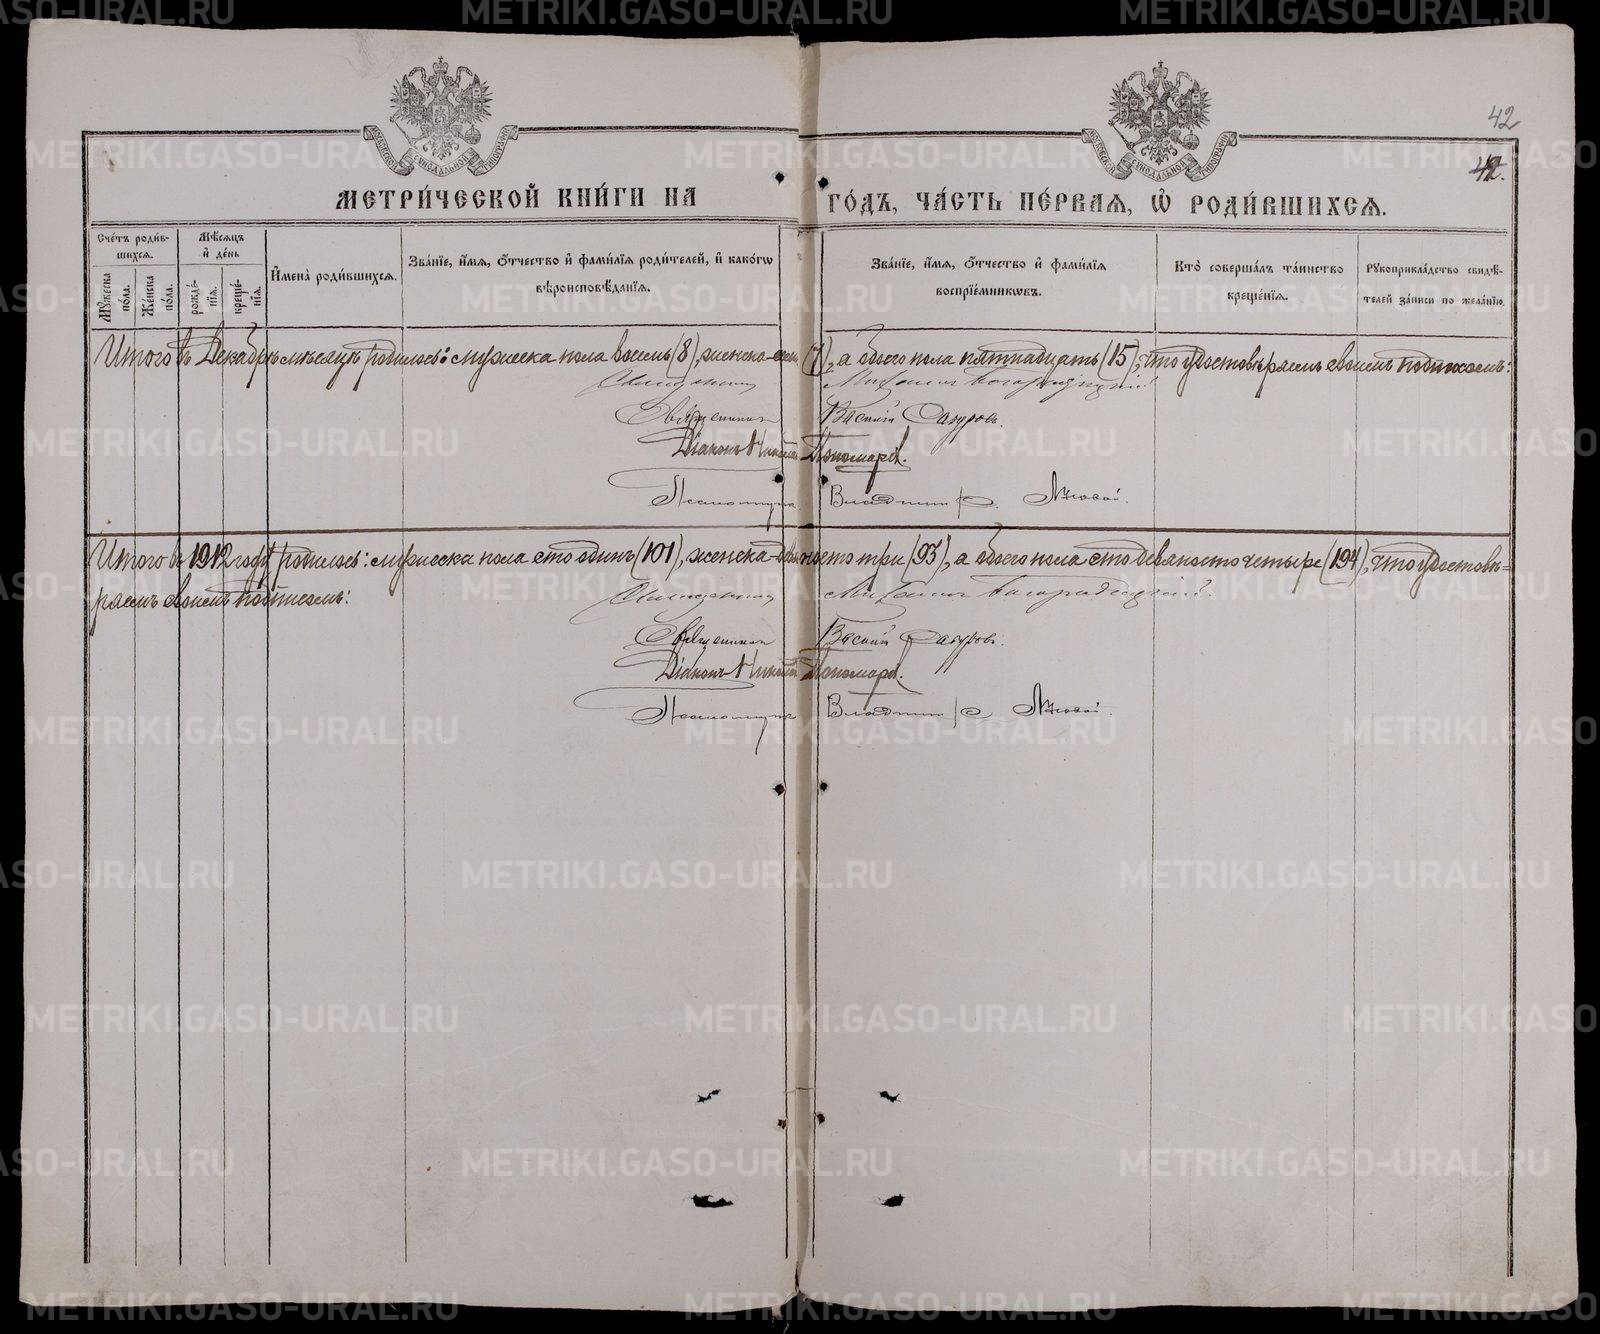 42
42.
МЕТРИ́ЧЕСКОЙ КНИ́ГИ НА ГО́ДЪ, ЧА́СТЬ ПЕ́РВАЯ, Ѡ҆ РОДИ́ВШИХСЯ.
Сче́тъ роди́в-
шихся.
Мѣ́сяцъ
и҆ де́нь
Мꙋ́жеска
по́ла.
Же́нска
по́ла.
рожде́-
нїѧ.
креще́-
нїѧ.
И҆мена̀ роди́вшихся.
Зва́нїе, и҆́мѧ, ѻ҆́тчество и҆ фами́лїѧ роди́телей, и҆ како́гѡ
вѣроисповѣ́данїѧ.
Зва́нїе, и҆́мѧ, ѻ҆́тчество и҆ фами́лїѧ
воспрїе́мникѡвъ.
Кто̀ соверша́лъ та́инство
креще́нїѧ.
Рꙋкоприкла́дство свидѣ́-
телей за́писи по жела́нїю.
Итого въ Декабрѣ мѣсяцѣ родилось: мужеска пола восемь (8), женска – семь (7), а обоего пола пятнадцать (15), что удостовѣряемъ своимъ подписомъ:
Священникъ Михаилъ Богородицкій
Священникъ Василій Сапуровъ.
Діаконъ Николай Пономаревъ.
Псаломщикъ Владимиръ
Итого въ 1912 году родилось: мужеска пола сто одинъ (101), женска – девяносто три (93), а обоего пола сто девяносто четыре (194), что удостовѣ=
ряемъ своимъ подписомъ:
Священникъ Михаилъ Богородицкій.
Священникъ Василій Сапуровъ.
Діаконъ Николай Пономаревъ.
Псаломщикъ Владимиръ
METRIKI.GASO-URAL.RU